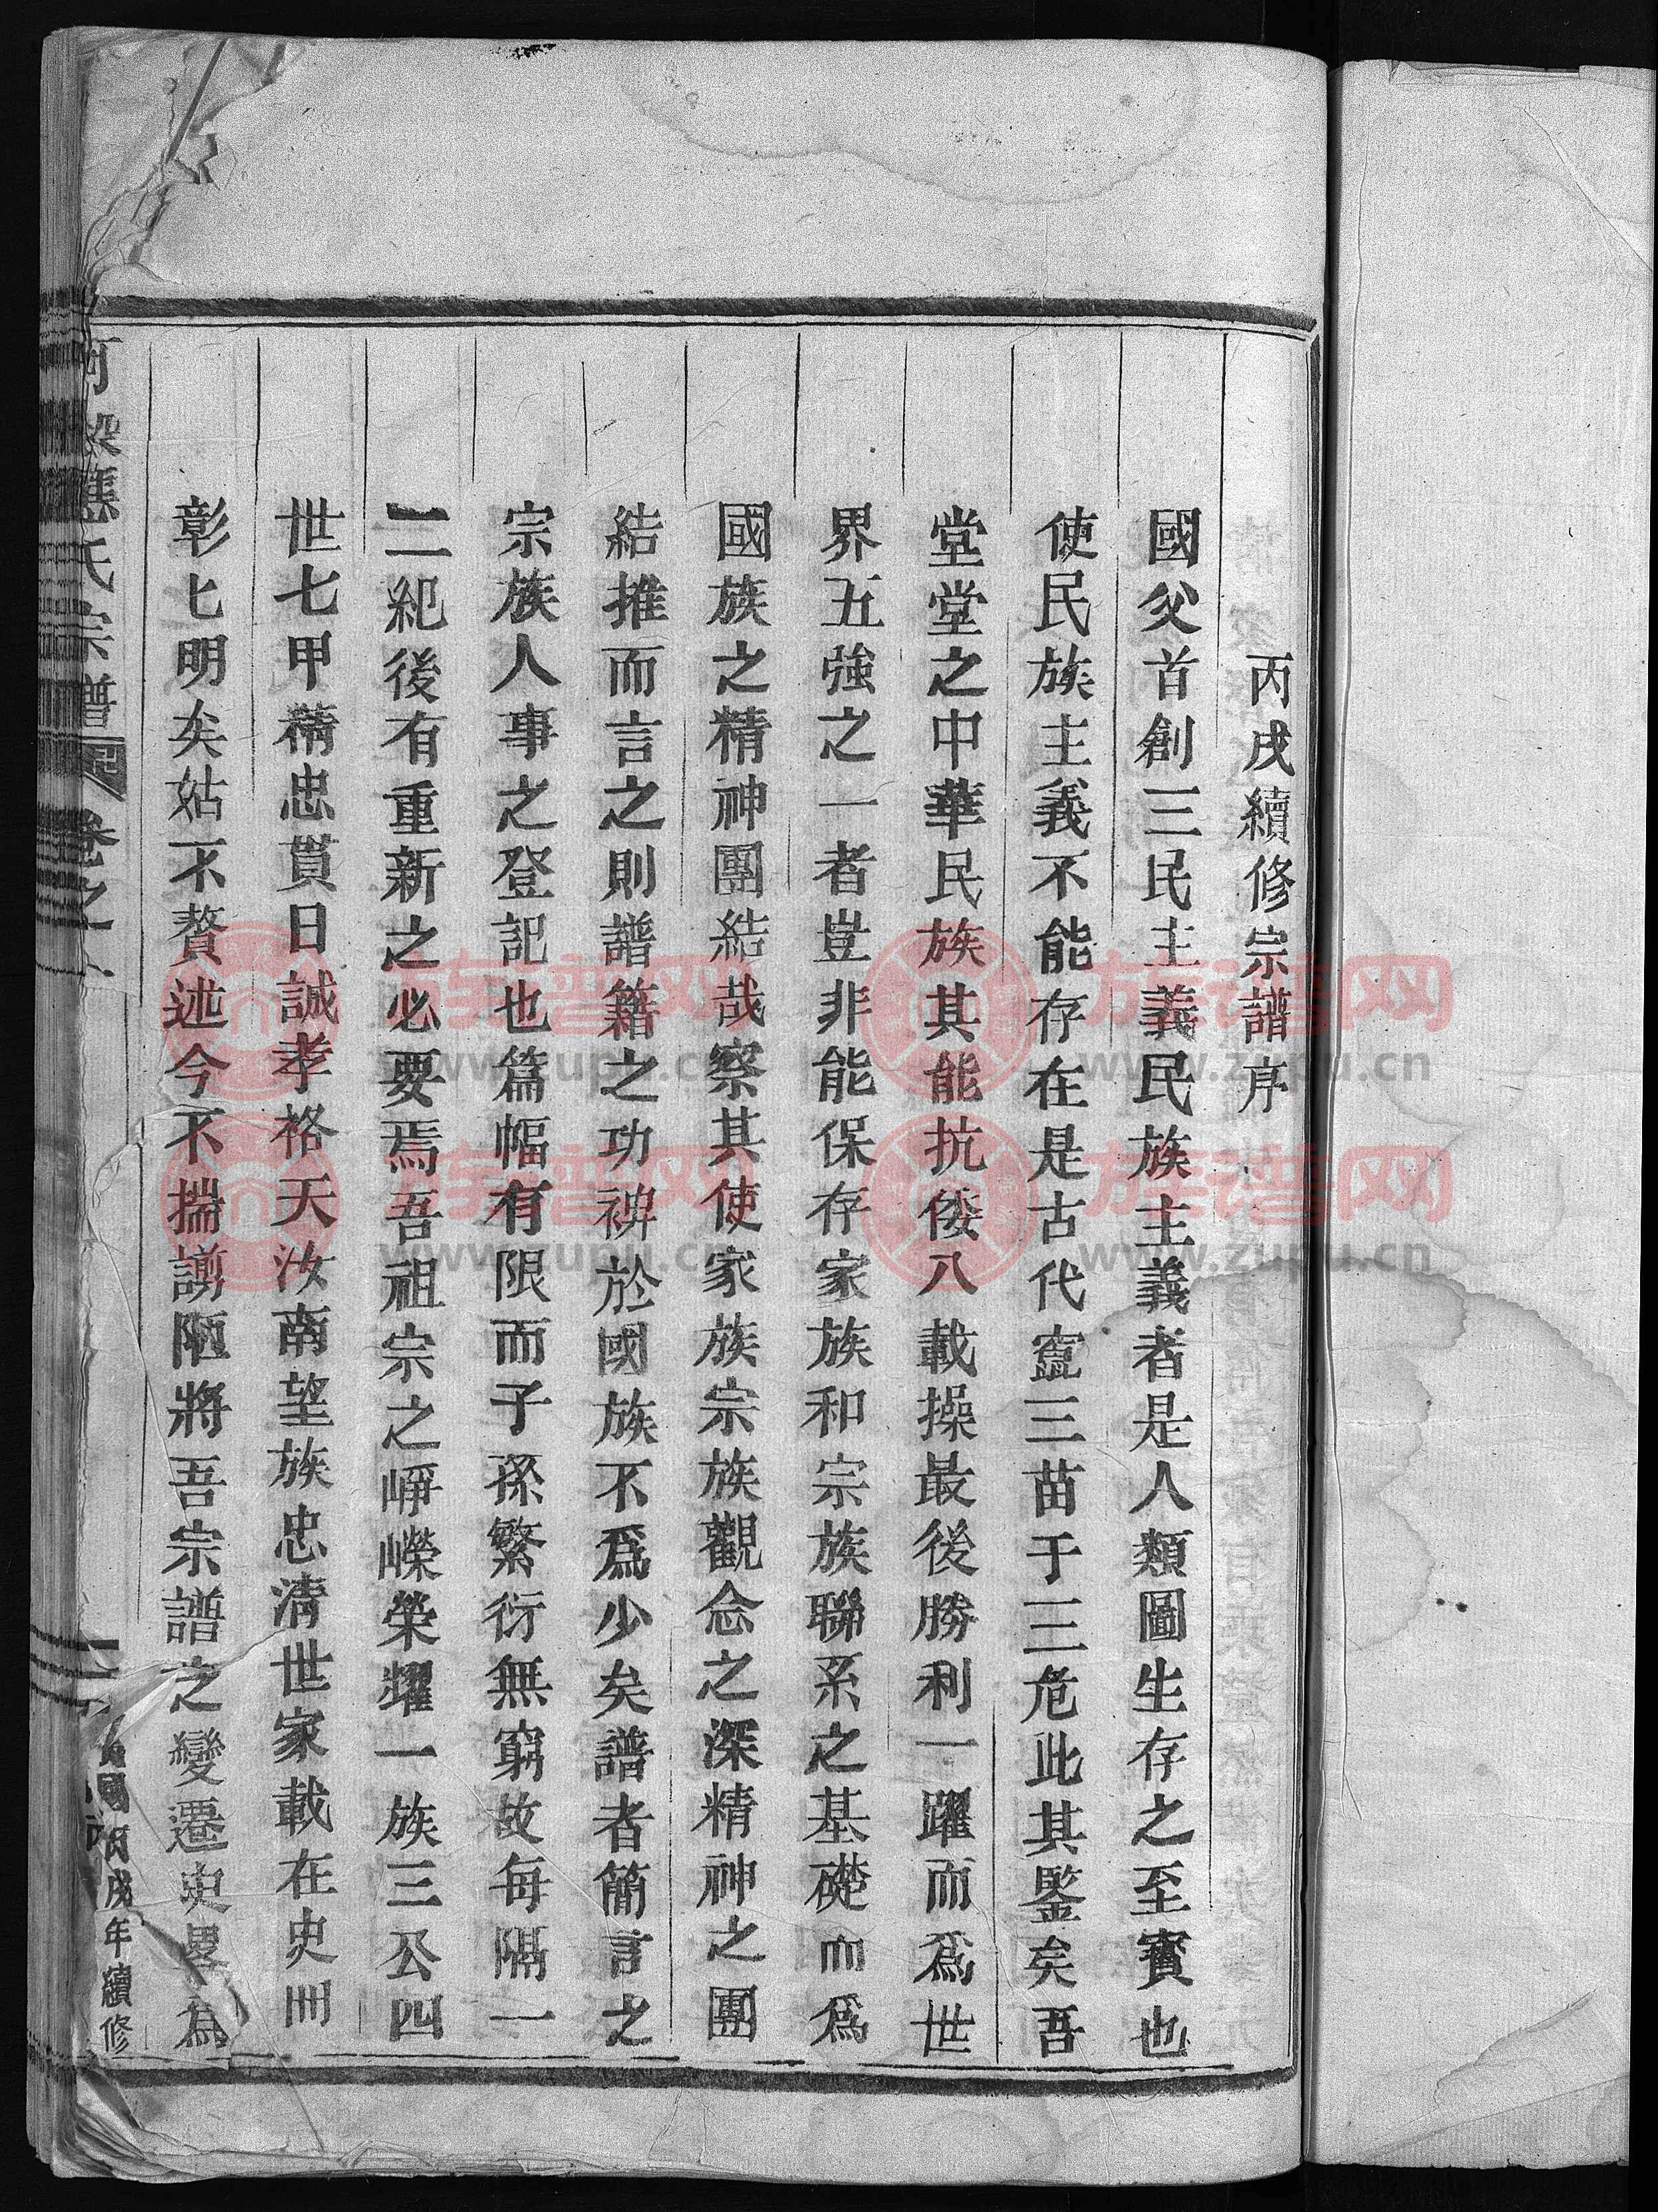 丙戌續修宗譜序
國父首創三民主義民族主義者是人類圖生存之至寶也
使民族主義不能存在是古代竄三苗于三危此其鑒矣吾
堂堂之中華民族其能抗倭八載操最後勝利一躍而爲世
界五強之一者豈非能保存家族和宗族聯系之基礎而爲
國族之精神團結哉察其使家族宗族觀念之深精神之團
結推而言之則譜籍之功裨於國族不爲少矣譜者簡言之
宗族人事之登記也篇幅有限而子孫繁衍無窮故每隔一
二紀後有重新之必要焉吾祖宗之崢嶸榮耀一族三公四
世七甲精忠貫日誠孝格天汝南望族忠清世家載在史冊
彰匕明矣姑不贅述今不揣謭陋將吾宗譜之變遷史畧為
氏宗譜 卷之
國丙戌年續修
族谱网
www.zupu.cn
族谱网
www.zupu.cn
族谱网
www.zupu.cn
族谱网
www.zupu.cn